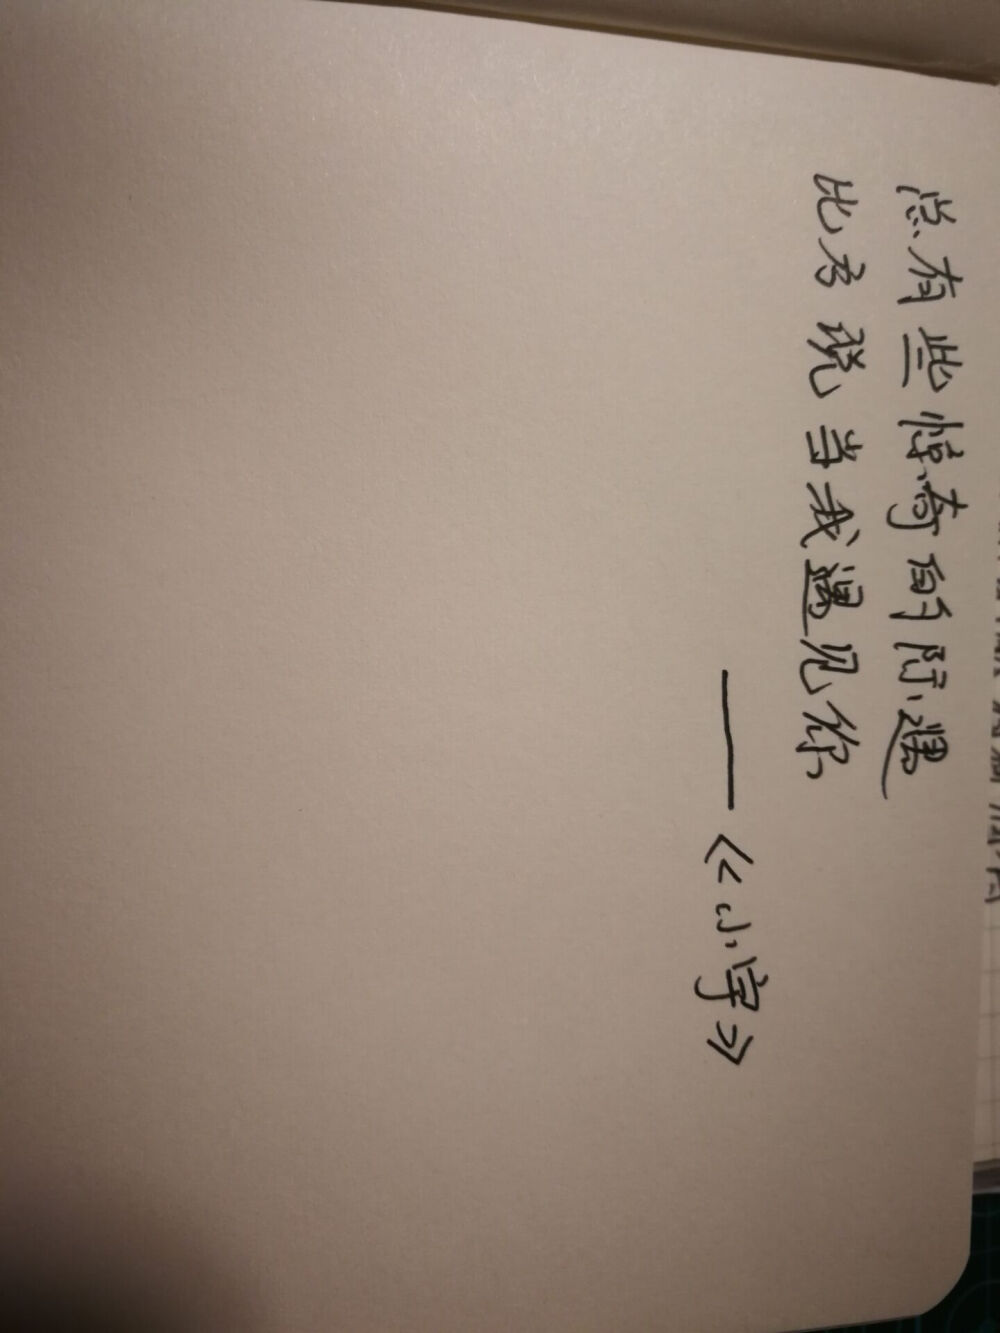 总有些惊奇的际遇
比方说当我遇见你
——《小宇》